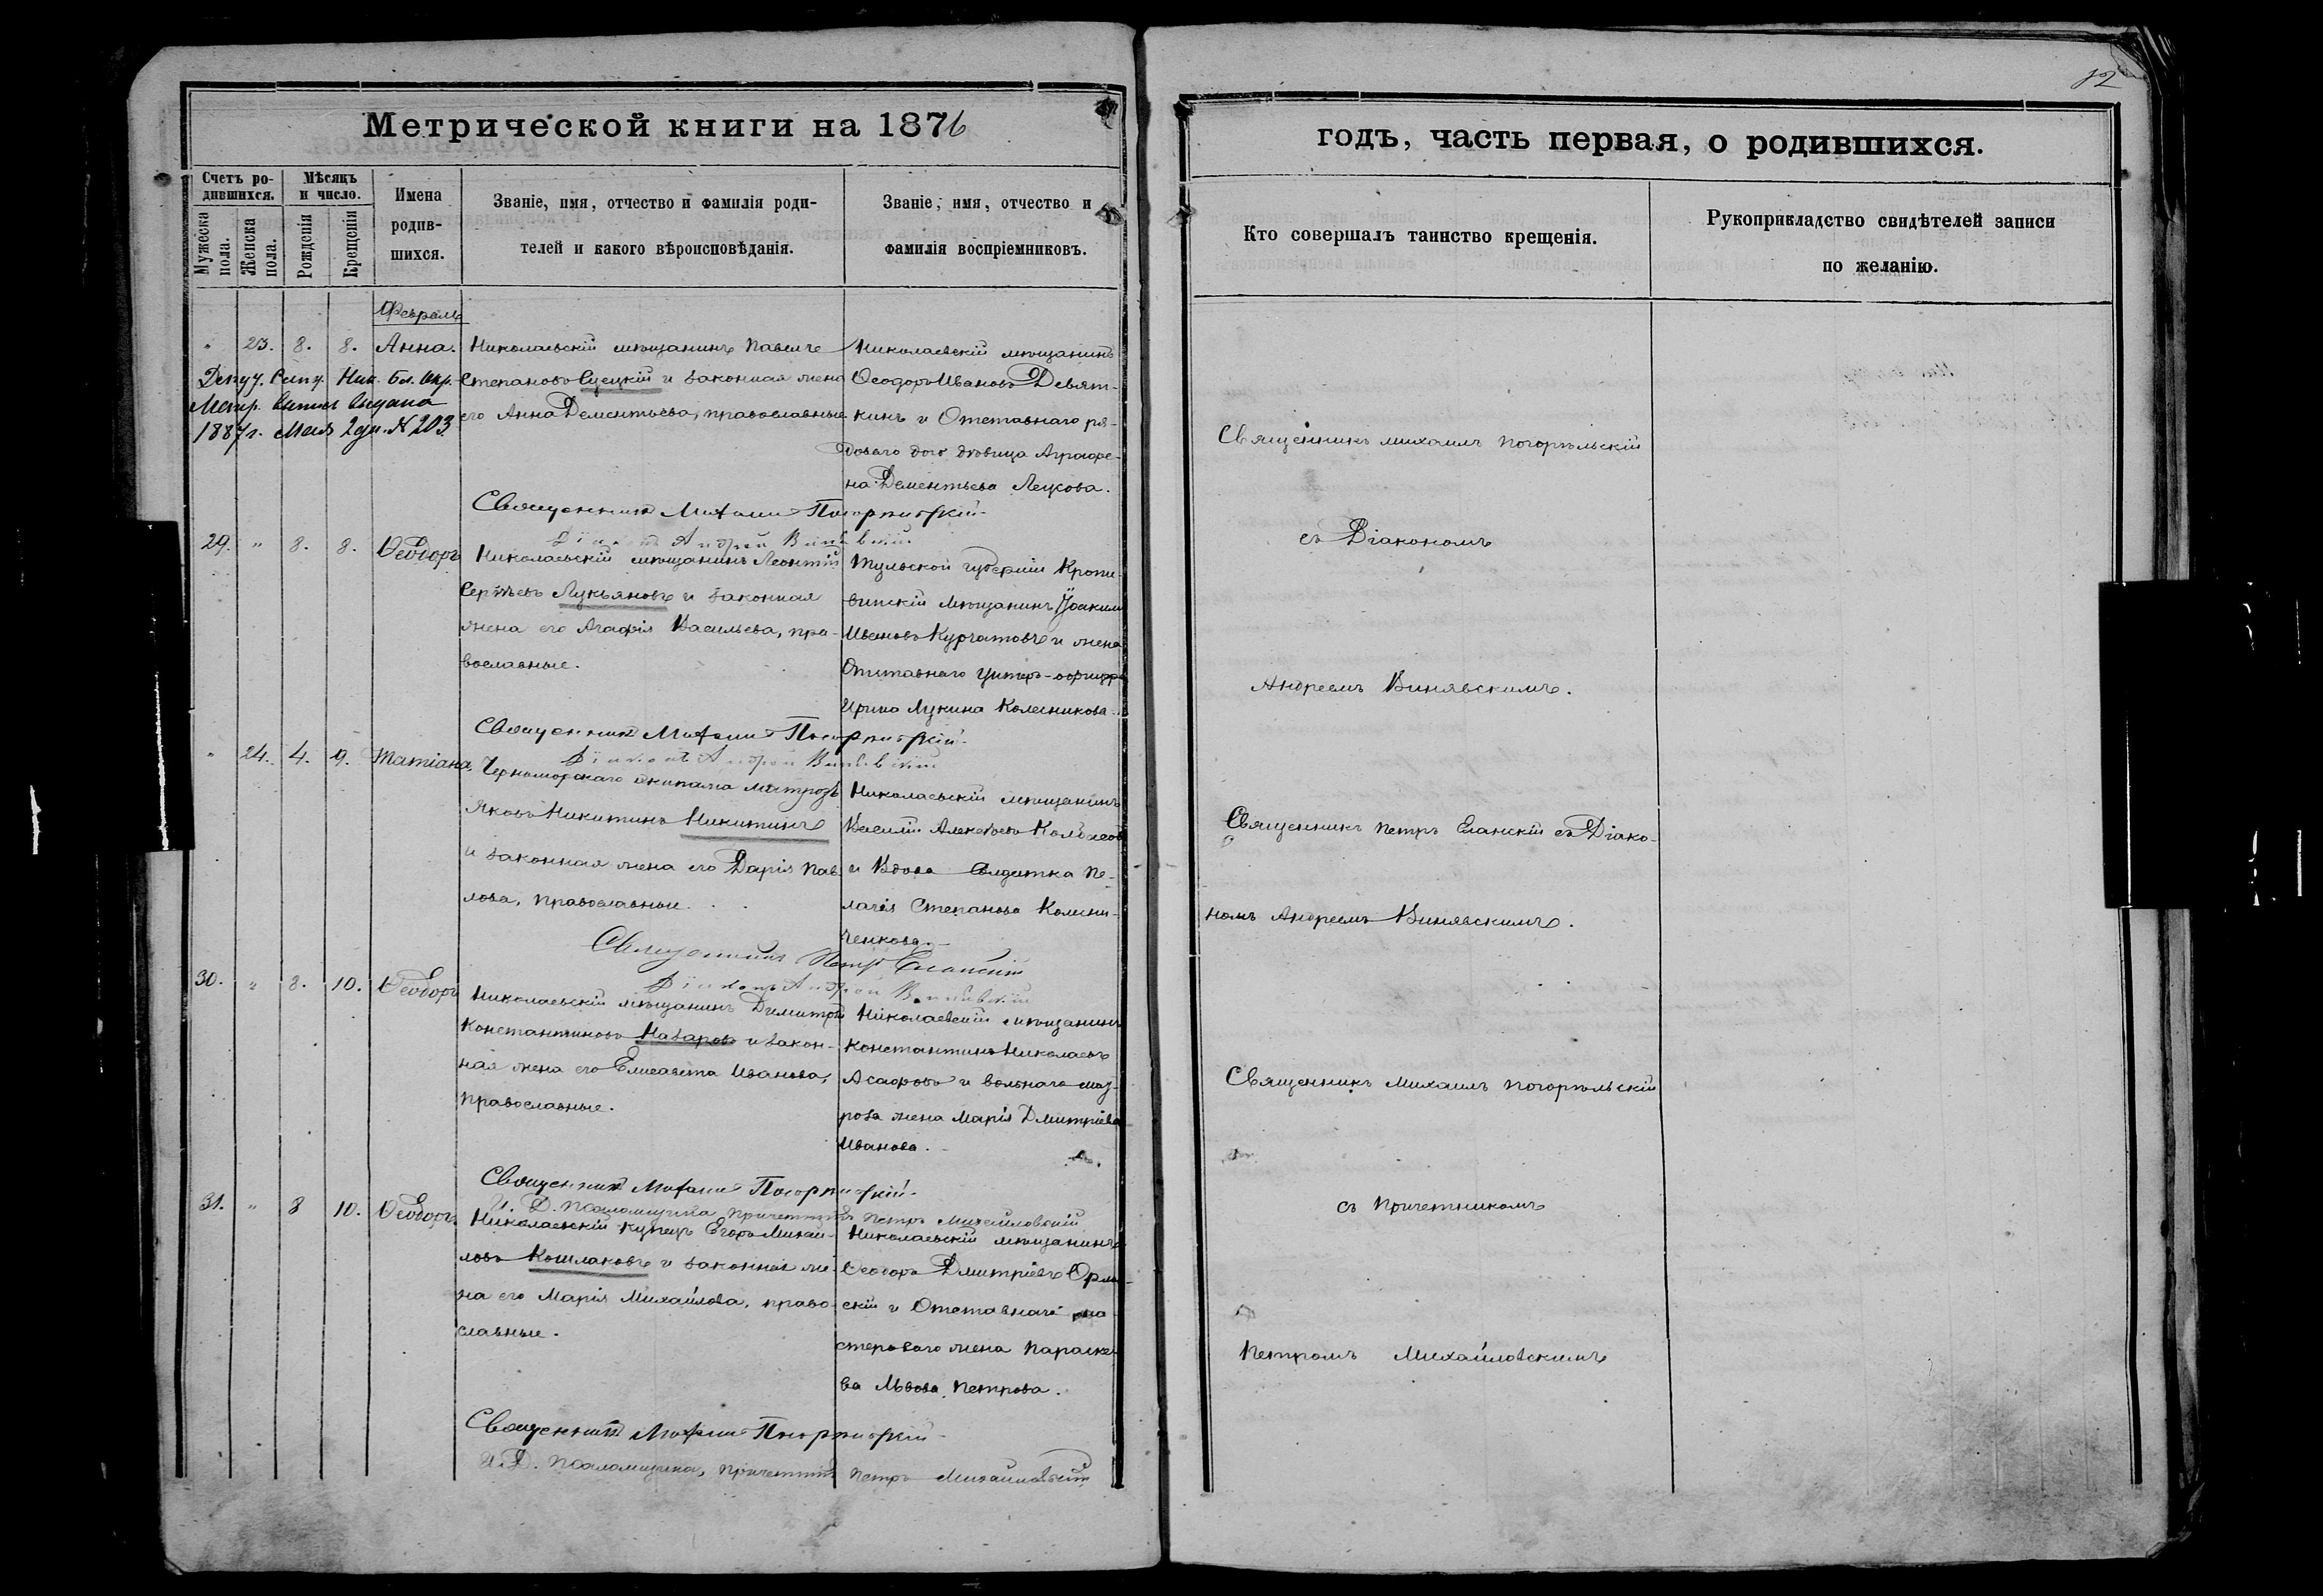 12
Метрической книги на 1876
годъ, часть первая, о родившихся.
Счетъ ро-
дившихся.
Мѣсяцъ
и число.
Мужеска
пола.
Женска
пола.
Рожденія
Крещенія
Имена
родив-
шихся.
Званіе, имя, отчество и фамилія роди-
телей и какого вѣроисповѣданія.
Званіе, имя, отчество и
фамилія воспріемниковъ.
Кто совершалъ таинство крещенія.
Рукоприкладство свидѣтелей записи
по желанію.
Февраль
" 23. 8. 8. Анна.
Николаевскій мѣщанинъ Павелъ
Степановъ и законная жена
его Анна Дементьева, православные
Метр. выпись выдана
1887 г. Мая 2 дн. № 203.
Николаевскій мѣщанинъ
Ѳеодоръ Ивановъ Девят-
кинъ и Отставнаго ря-
доваго дочь дѣвица Аграфе-
на Дементьева
Священникъ Михаилъ Погорѣльскій
Діаконъ Андрей Винявскій
Священникъ Михаилъ Погорѣльскій
съ Діакономъ
Андреемъ Винявскимъ.
29. " 8. 8. Ѳеодоръ
Николаевскій мѣщанинъ Леонтій
Сергѣевъ Лукьяновъ и законная
жена его Агафія Васильева, пра-
вославные.
Тульской губерніи Крапи-
винскій мѣщанинъ Іоакимъ
Ивановъ Курчатовъ и жена
Отставнаго Унтеръ-офицера
Ирина Лукина Колесникова.
Священникъ Михаилъ Погорѣльскій
Діаконъ Андрей Винявскій
" 24. 4. 9. Татіана.
Черноморскаго экипажа матрозъ
Яковъ Никитинъ Никитинъ
и законная жена его Дарія Пав-
лова, православные.
Николаевскій мѣщанинъ
Василій Алексѣевъ
и Вдова Солдатка Пе-
лагія Степанова Колесни-
ченкова.
Священникъ Петръ Еланскій
Діаконъ Андрей Винявскій
Священникъ Петръ Еланскій съ Діако-
номъ Андреемъ Винявскимъ.
30. " 8. 10. Ѳеодоръ
Николаевскій мѣщанинъ Димитрій
Константиновъ Назаровъ и закон-
ная жена его Елисавета Иванова,
православные.
Николаевскій мѣщанинъ
Константинъ Николаевъ
Асафовъ и вольнаго мат-
роза жена Марія Дмитріева
Иванова.
Священникъ Михаилъ Погорѣльскій
И. Д. Псаломщика, причетникъ Петръ Михайловскій
Священникъ Михаилъ Погорѣльскій
съ Причетникомъ
Петромъ Михайловскимъ
31. " 8 10. Ѳеодоръ.
Николаевскій купецъ Егоръ Михай-
ловъ Кошлаковъ и законная же-
на его Марія Михайлова, право-
славные.
Николаевскій мѣщанинъ
Ѳеодоръ Дмитріевъ Орлов-
скій и Отставнаго ма-
стероваго жена Параске-
ва Львова Петрова.
Священникъ Михаилъ Погорѣльскій
И. Д. Псаломщика, причетникъ Петръ Михайловскій